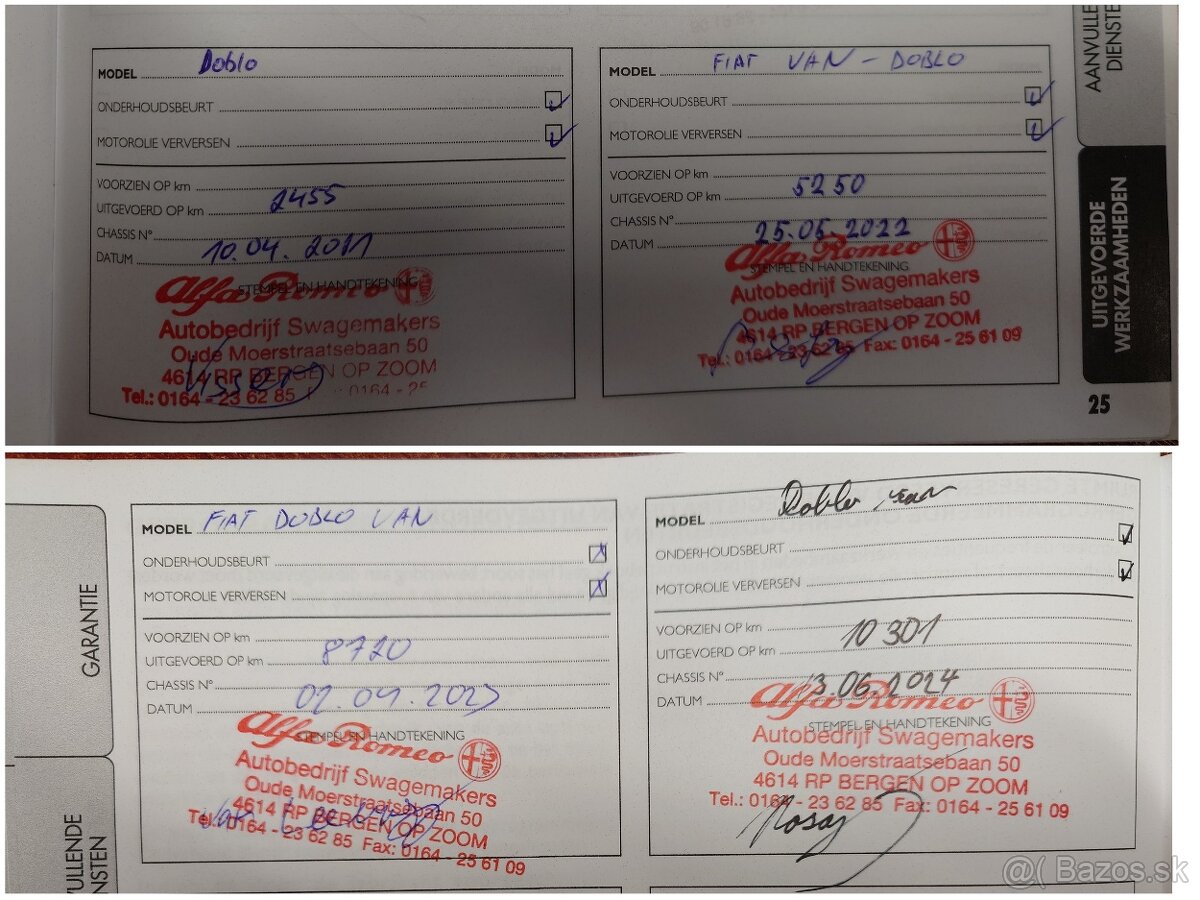 AANVULLE
DIENSTE
MODEL Doblo
ONDERHOUDSBEURT
MOTOROLIE VERVERSEN
VOORZIEN OP km
UITGEVOERD OP km 2455
CHASSIS N°
DATUM 10.04.2021
STEMPEL EN HANDTEKENING
Alfa Romeo
Autobedrijf Swagemakers
Oude Moerstraatsebaan 50
4614 RP BERGEN OP ZOOM
Tel.: 0164 - 23 62 85
MODEL FIAT VAN - DOBLO
ONDERHOUDSBEURT
MOTOROLIE VERVERSEN
VOORZIEN OP km
UITGEVOERD OP km 5250
CHASSIS N°
DATUM 25.06.2022
STEMPEL EN HANDTEKENING
Alfa Romeo
Autobedrijf Swagemakers
Oude Moerstraatsebaan 50
4614 RP BERGEN OP ZOOM
Tel.: 0164 - 23 62 85 Fax: 0164 - 25 61 09
UITGEVOERDE
WERKZAAMHEDEN
25
GARANTIE
VULLENDE
NSTEN
MODEL FIAT DOBLO VAN
ONDERHOUDSBEURT
MOTOROLIE VERVERSEN
VOORZIEN OP km
UITGEVOERD OP km 8720
CHASSIS N°
DATUM 02.04.2023
STEMPEL EN HANDTEKENING
Alfa Romeo
Autobedrijf Swagemakers
Oude Moerstraatsebaan 50
4614 RP BERGEN OP ZOOM
Tel.: 0164 - 23 62 85 Fax: 0164 - 25 61 09
MODEL Doblo van
ONDERHOUDSBEURT
MOTOROLIE VERVERSEN
VOORZIEN OP km
UITGEVOERD OP km 10301
CHASSIS N°
DATUM 13.06.2024
STEMPEL EN HANDTEKENING
Alfa Romeo
Autobedrijf Swagemakers
Oude Moerstraatsebaan 50
4614 RP BERGEN OP ZOOM
Tel.: 0164 - 23 62 85 Fax: 0164 - 25 61 09
@( Bazos.sk